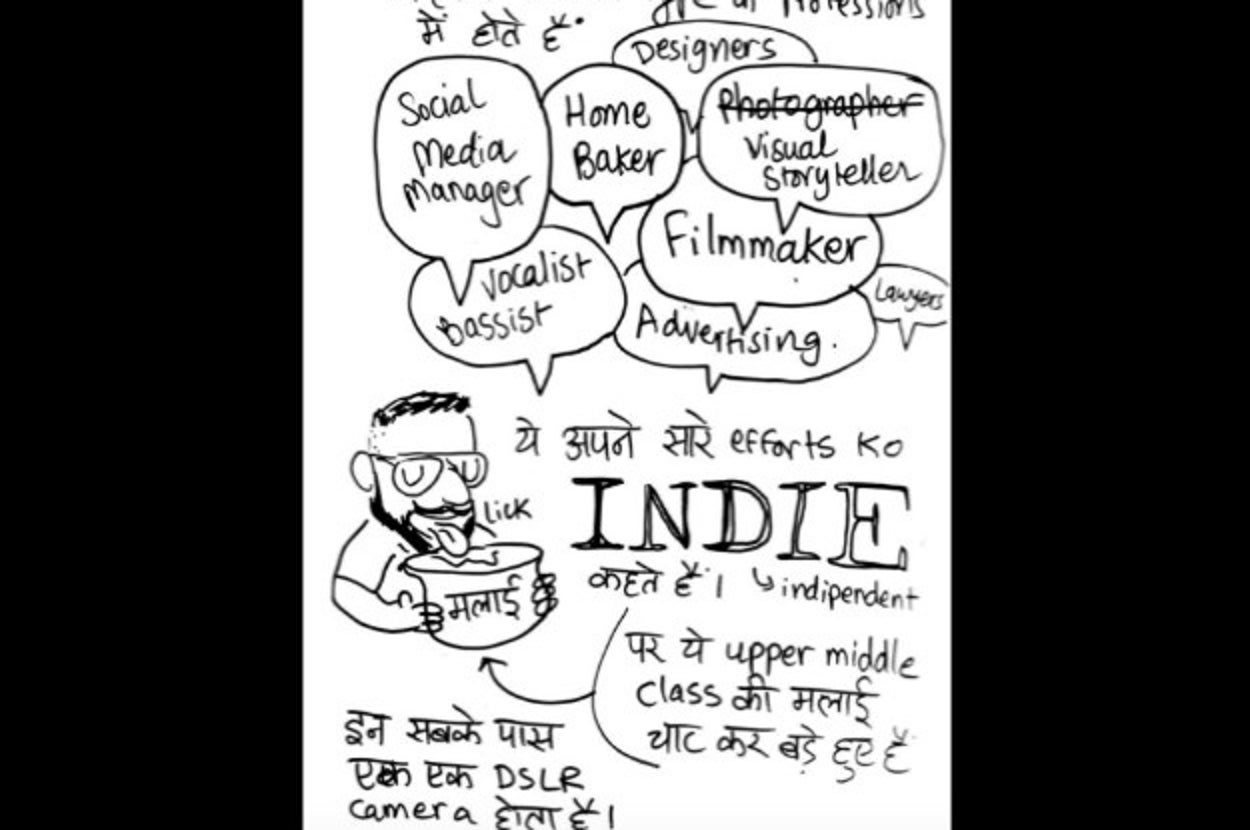 Professions
में होते हैं.
Designers
Social
Media
Manager
Home
Baker
Photographer
Visual
Storyteller
Filmmaker
Lawyers
Vocalist
Bassist
Advertising.
ये अपने सारे efforts Ko
Lick
INDIE
कहते हैं। ↳ indipendent
मलाई
पर ये upper middle
class की मलाई
चाट कर बड़े हुए हैं
इन सबके पास
एक एक DSLR
camera होता हैं।